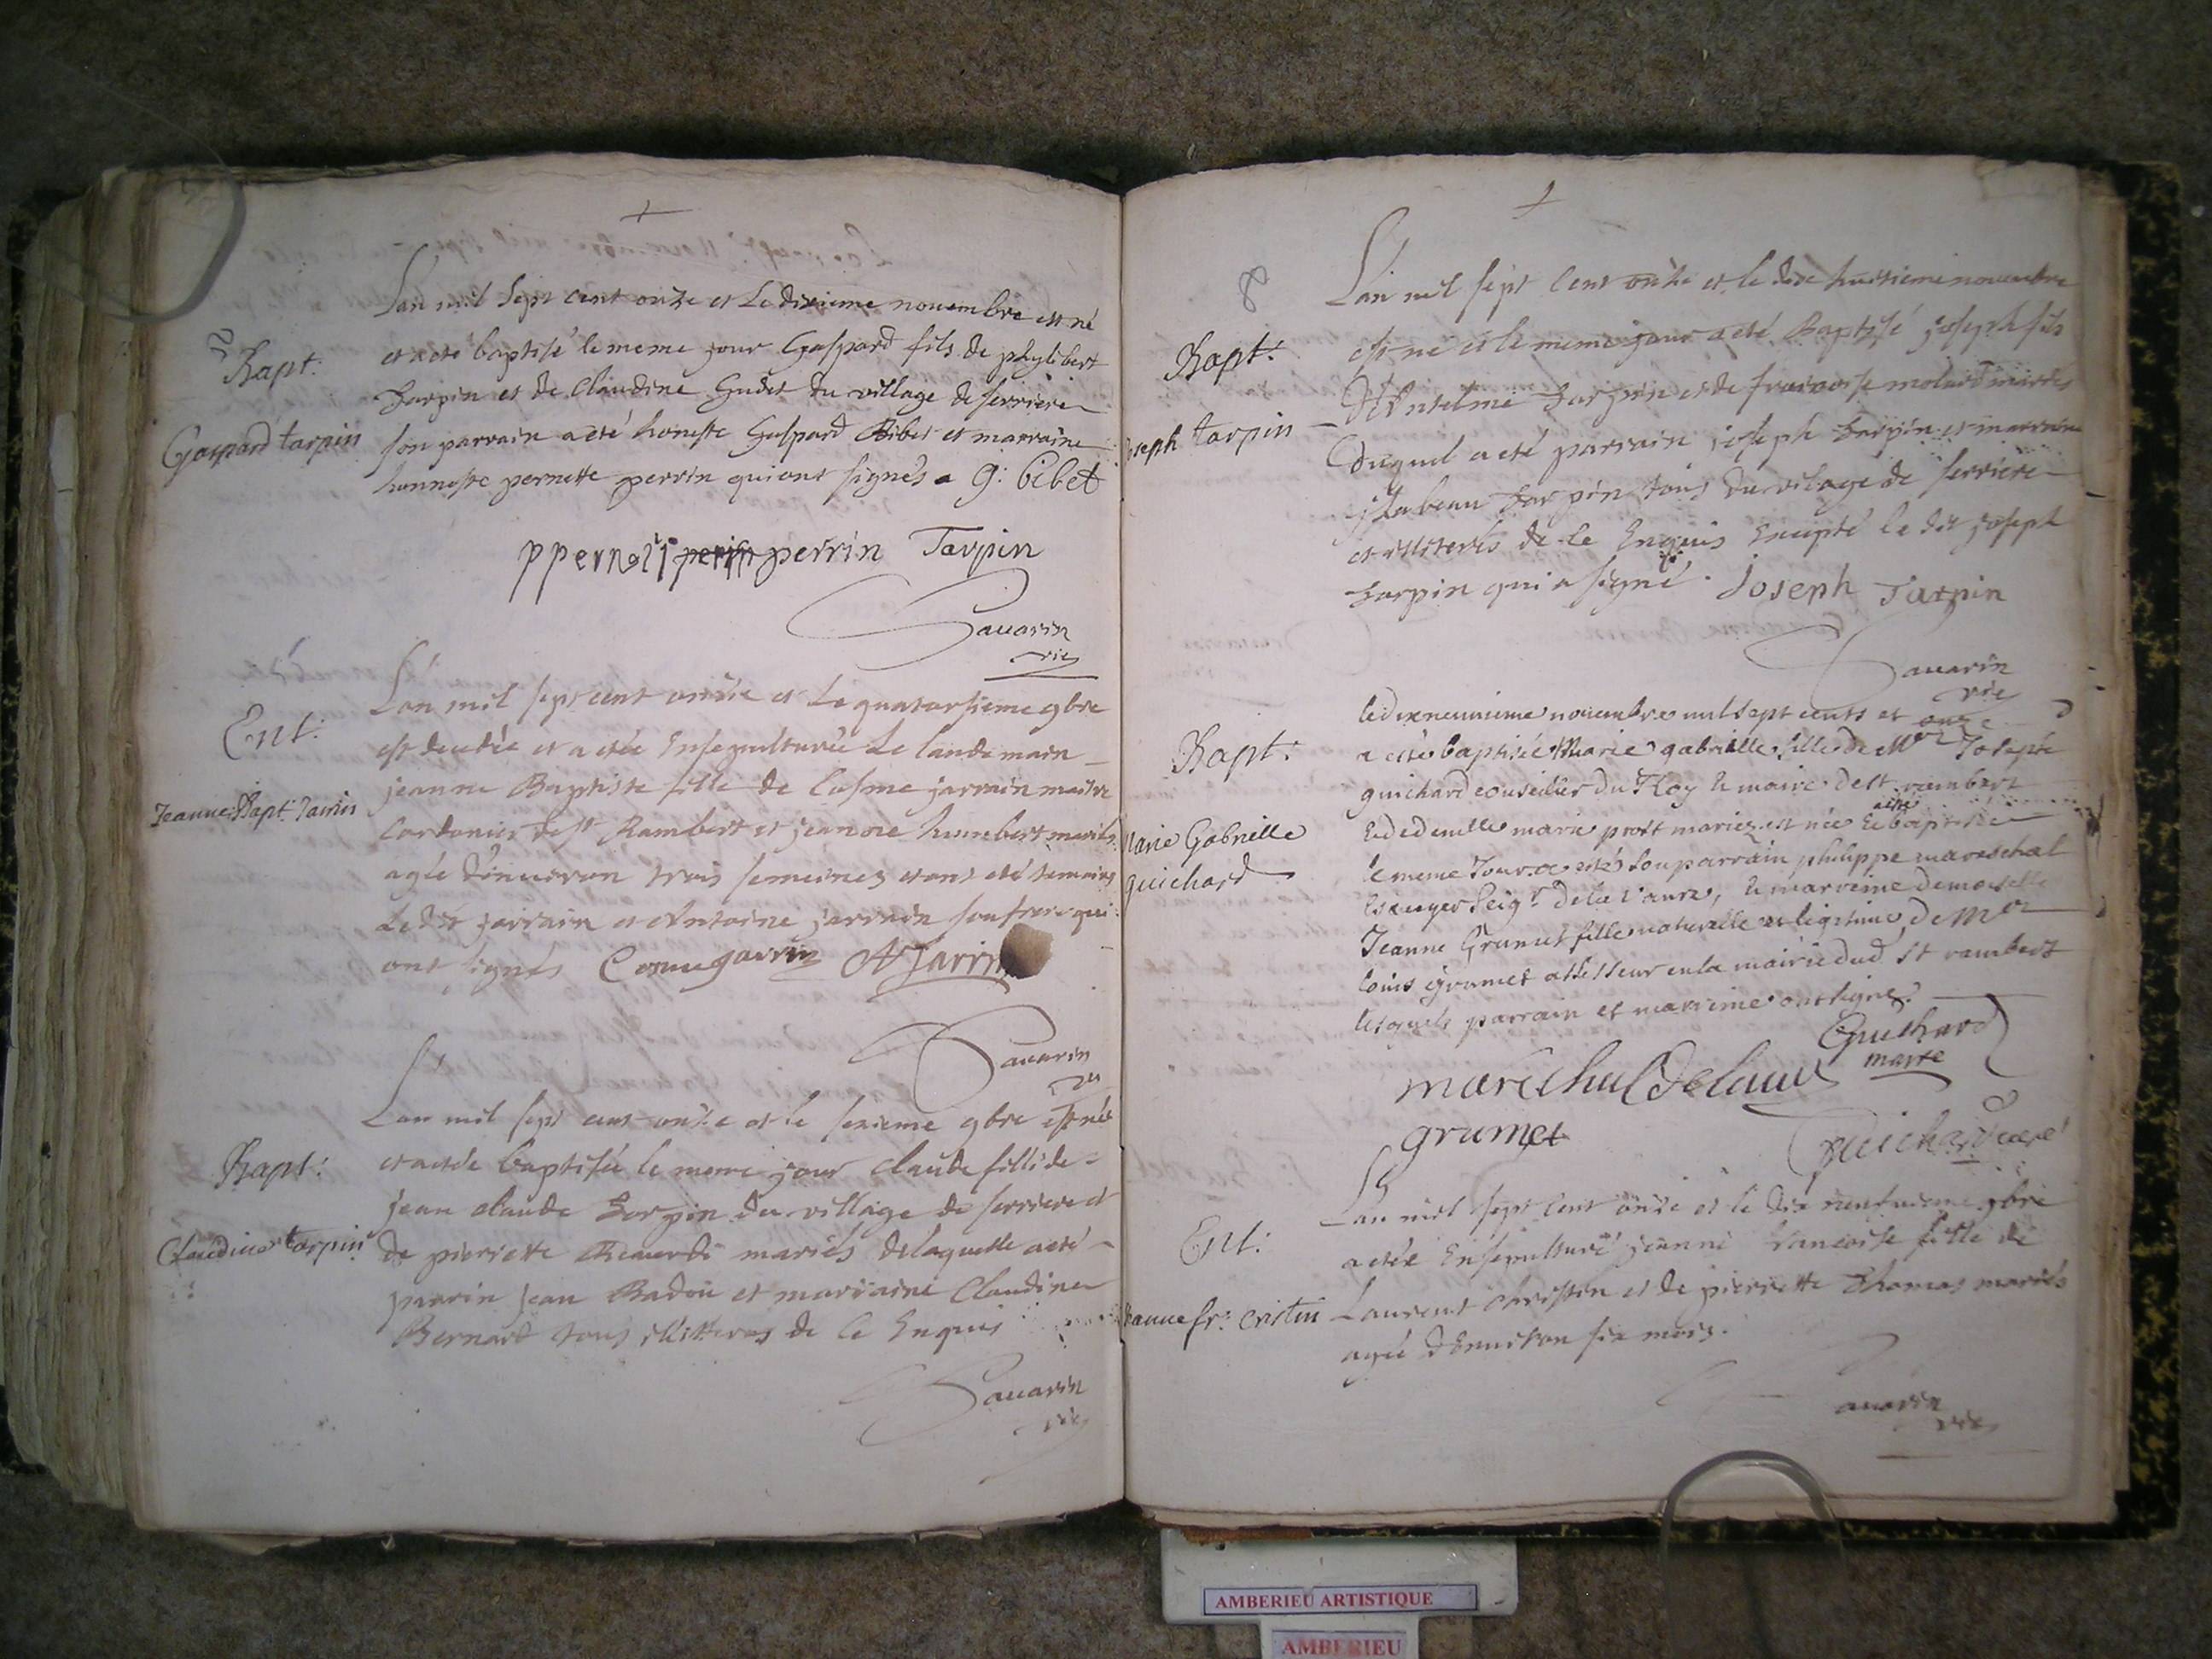 Bapt:
Gaspard tarpin
Lan mil sept cent onze et Le dixieme novembre est né
et a eté baptisé le meme jour Gaspard fils de phylibert
tarpin et de Claudine Gudet du village de serriere
son parrain a eté honeste Gaspard Bibet et marraine
honneste pernette perrin qui ont signés G: bibet
perrin Tarpin
Savarin
vic
Ent:
Jeanne Bapt: Jarrin
Lan mil sept cent onze et Le quatorsieme 9bre
est decedée et a etée Ensepulturée Le landemain
jeanne Baptiste fille de Cosme jarrain maitre
Cordonier de St Rambert et jeanne humbert mariés
agée d'environ trois semeines et ont eté temoins
Le dit jarrain et Antoine jarrain son frere qui
ont signés Come jarrin A Jarrin
Savarin
vic
Bapt:
Claudine tarpin
Lan mil sept cent onze et le sezieme 9bre est née
et a etée baptisée le meme jour claude fille de
jean claude tarpin du village de serriere et
de pierrette mariés de laquelle a eté
parrin jean Badou et marraine Claudine
Bernard tous illiteres de ce Enquis
Savarin
vic
8
Bapt:
Joseph tarpin
Lan mil sept Cent onze et le dix huitieme novembre
est né et le meme jour a eté Baptisé joseph fils
d'Anselme tarpin et de francoise molard mariés
Duquel a eté parrain joseph tarpin et marraine
jzabeau tarpin tous du vilage de serriere
et illiterés de ce Enquis Excepté le dit joseph
tarpin qui a signé. joseph Tarpin
Savarin
vic
Bapt:
Marie Gabrielle
guichard
le dix neuvieme novembre mil sept cents et onze
a esté baptisée Marie gabrielle fille de Mre Joseph
guichard conseiller du Roy & maire de st rambert
& de demlle marie prost mariez est née & baptisée
le meme Jour a esté son parrain philippe mareschal
Escuyer Seigr de la vaure, & marreine demoiselle
Jeanne Grumet fille naturelle et legitime de Mre
louis grumet assesseur en la mairie dud. st rambert
lesquels parrain et marreine ont signé.
Guichard
maire
marechal Delaure
grumet
guichard curé
Ent:
Jeanne fr: cristin
Lan mil sept Cent onze et le dix neufvieme 9bre
a etée Ensepulturé jeanne francoise fille de
Laurent christin et de pierrette Thomas mariés
agée d'Environ six mois.
Savarin
vic
AMBERIEU ARTISTIQUE
AMBERIEU